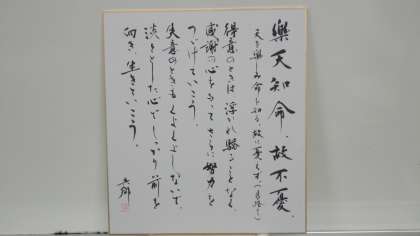 樂天知命、故不憂。
天を楽しみ命を知る、故に憂えず(易経)
得意のときは浮かれ騒ぐことなく
感謝の心をもってさらに努力を
つづけていこう。
失意のときもくよくよしないで、
淡々とした心でしっかり前を
向き、生きていこう。